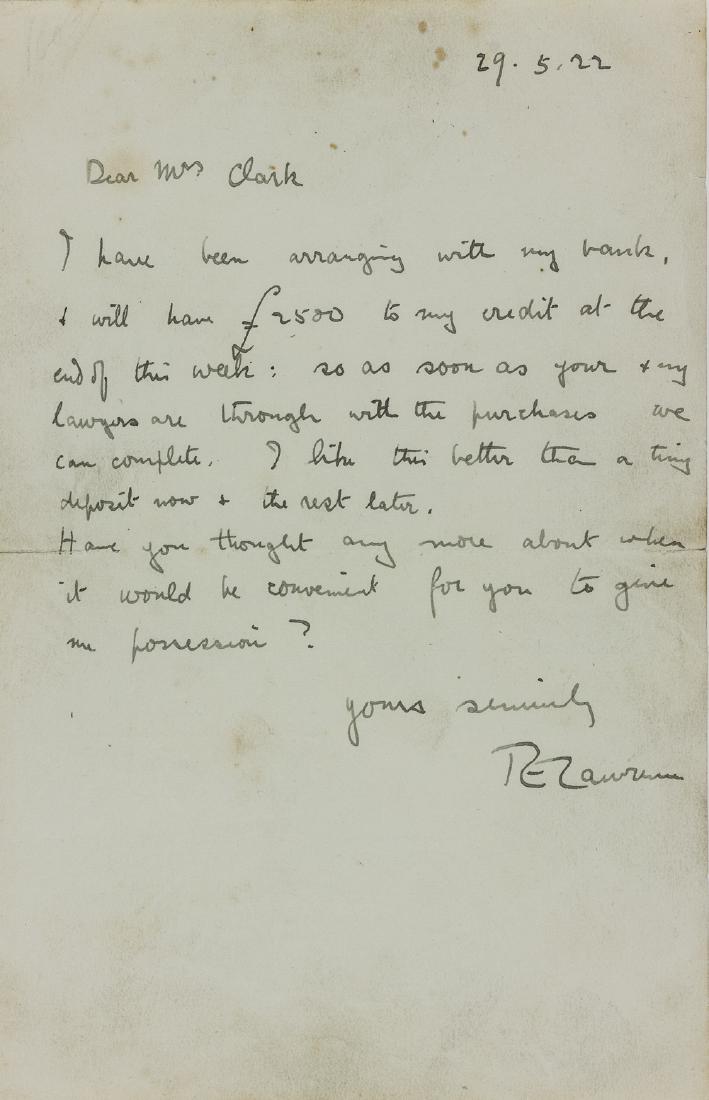 29. 5. 22
Dear Mrs Clark
I have been arranging with my bank,
& will have £2500 to my credit at the
end of this week: so as soon as your & my
lawyers are through with the purchases we
can complete. I like this better than a tiny
deposit now & the rest later.
Have you thought any more about when
it would be convenient for you to give
me possession?
yours sincerely
TE Lawrence